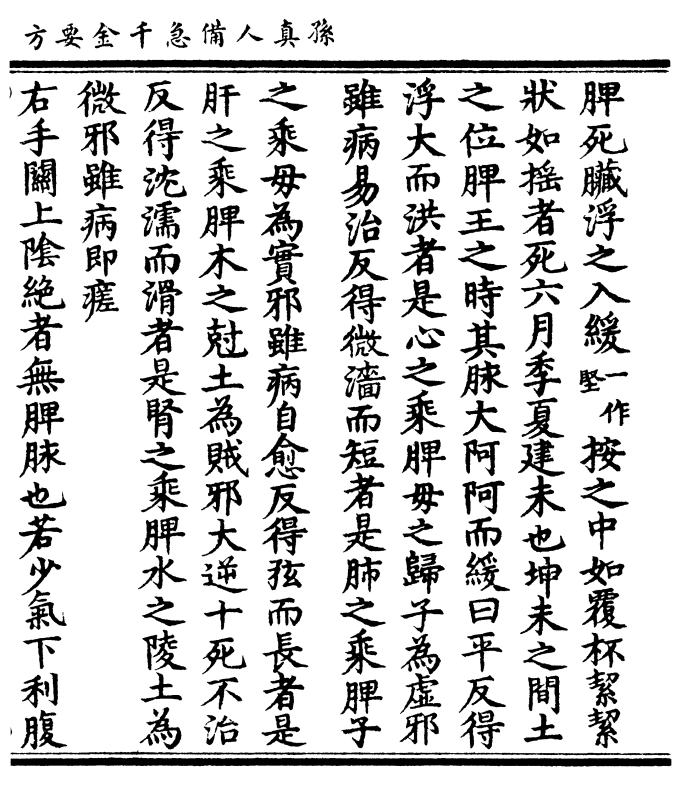 孫真人備急千金要方
脾死臟浮之入緩一作堅按之中如覆杯絜絜
狀如揺者死六月季夏建未也坤未之間土
之位脾王之時其脉大阿阿而緩曰平反得
浮大而洪者是心之乘脾毋之歸子為虛邪
雖病易治反得微濇而短者是肺之乘脾子
之乘毋為實邪雖病自愈反得弦而長者是
肝之乘脾木之尅土為賊邪大逆十死不治
反得沈濡而滑者是腎之乘脾水之陵土為
微邪雖病即瘥
右手關上陰絶者無脾脉也若少氣下利腹